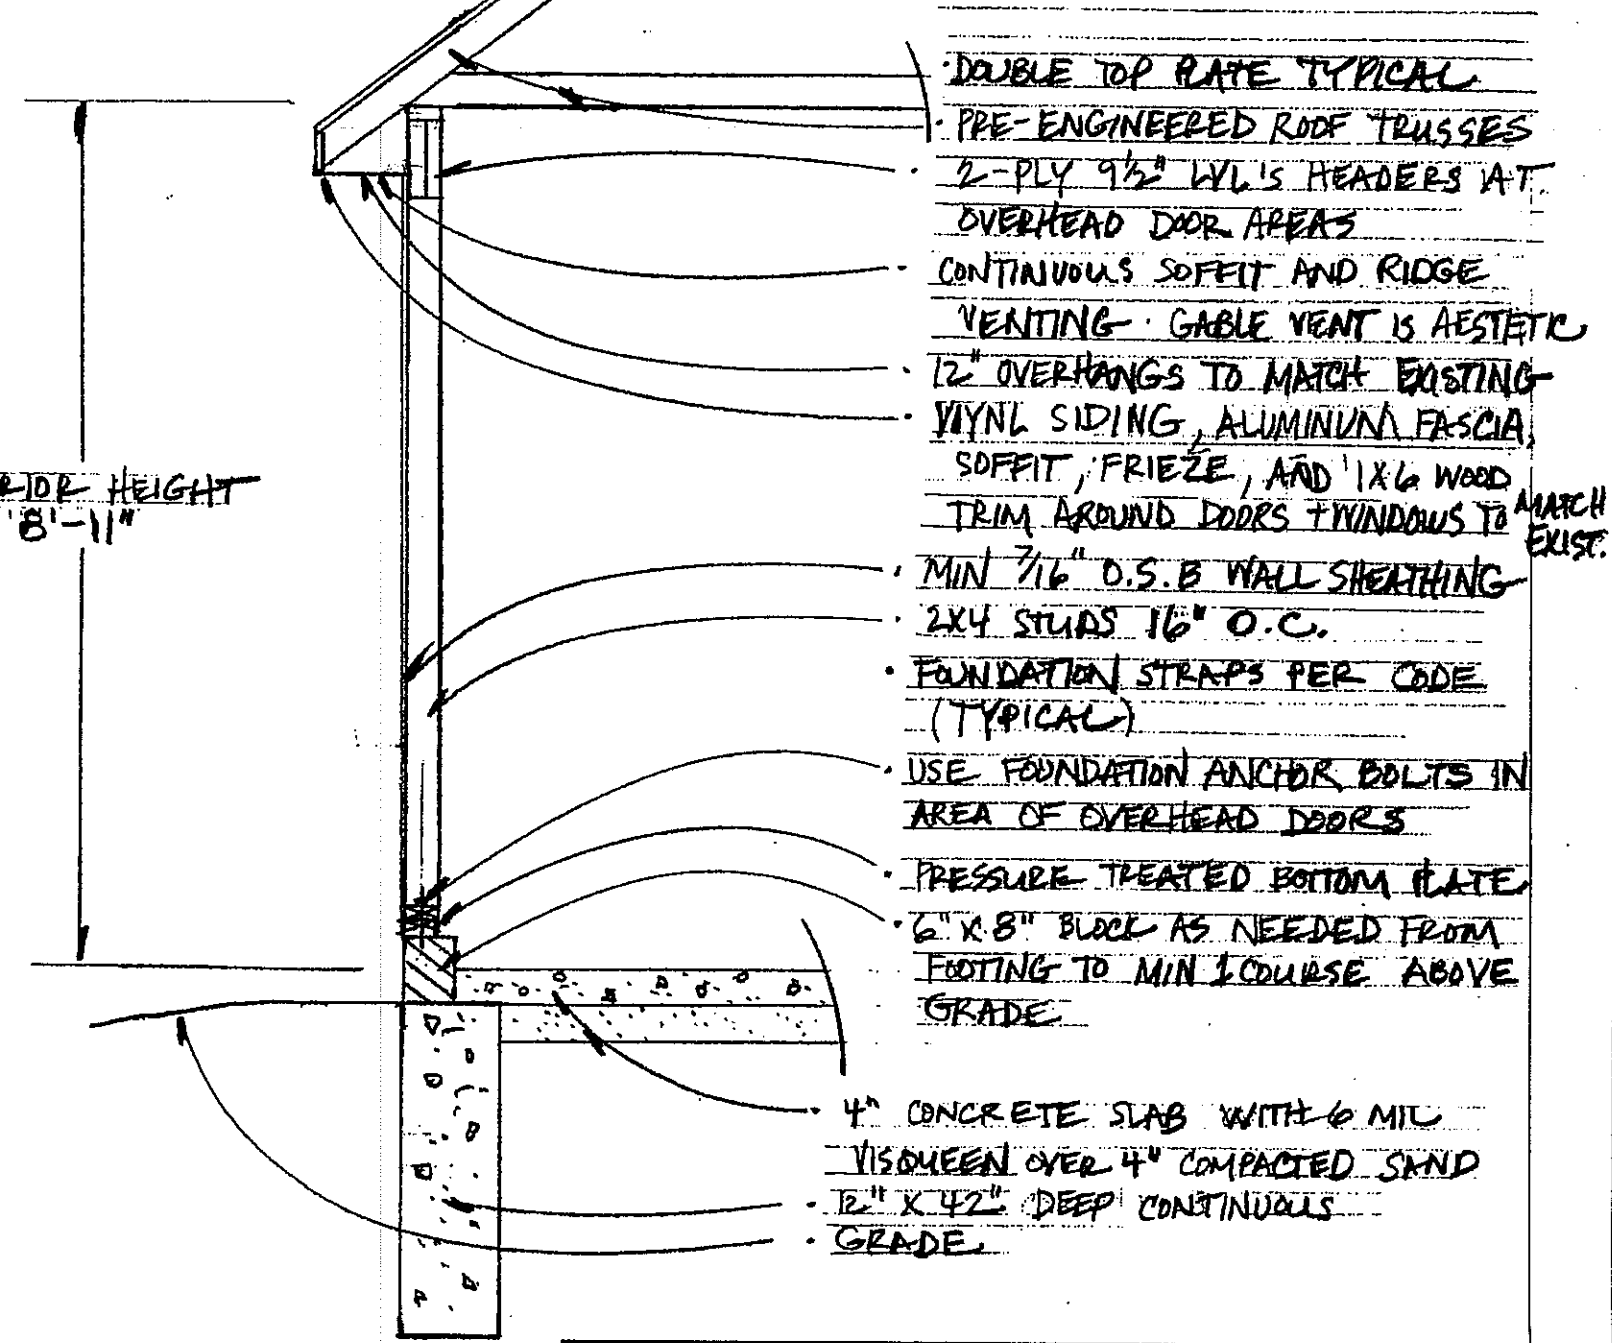 · DOUBLE TOP PLATE TYPICAL
· PRE-ENGINEERED ROOF TRUSSES
· 2-PLY 9½" LVL'S HEADERS AT
OVERHEAD DOOR AREAS
· CONTINUOUS SOFFIT AND RIDGE
VENTING · GABLE VENT IS AESTETIC
· 12" OVERHANGS TO MATCH EXISTING
· VIYNL SIDING, ALUMINUM FASCIA,
SOFFIT, FRIEZE, AND 1X6 WOOD
TRIM AROUND DOORS + WINDOWS TO MATCH
EXIST.
RIOR HEIGHT
8'-11"
· MIN 7/16" O.S.B WALL SHEATHING
· 2X4 STUDS 16" O.C.
· FOUNDATION STRAPS PER CODE
(TYPICAL)
· USE FOUNDATION ANCHOR BOLTS IN
AREA OF OVERHEAD DOORS
· PRESSURE TREATED BOTTOM PLATE
· 6" X 8" BLOCK AS NEEDED FROM
FOOTING TO MIN 1 COURSE ABOVE
GRADE
· 4" CONCRETE SLAB WITH 6 MIL
VISQUEEN OVER 4" COMPACTED SAND
· 12" X 42" DEEP CONTINUOUS
· GRADE